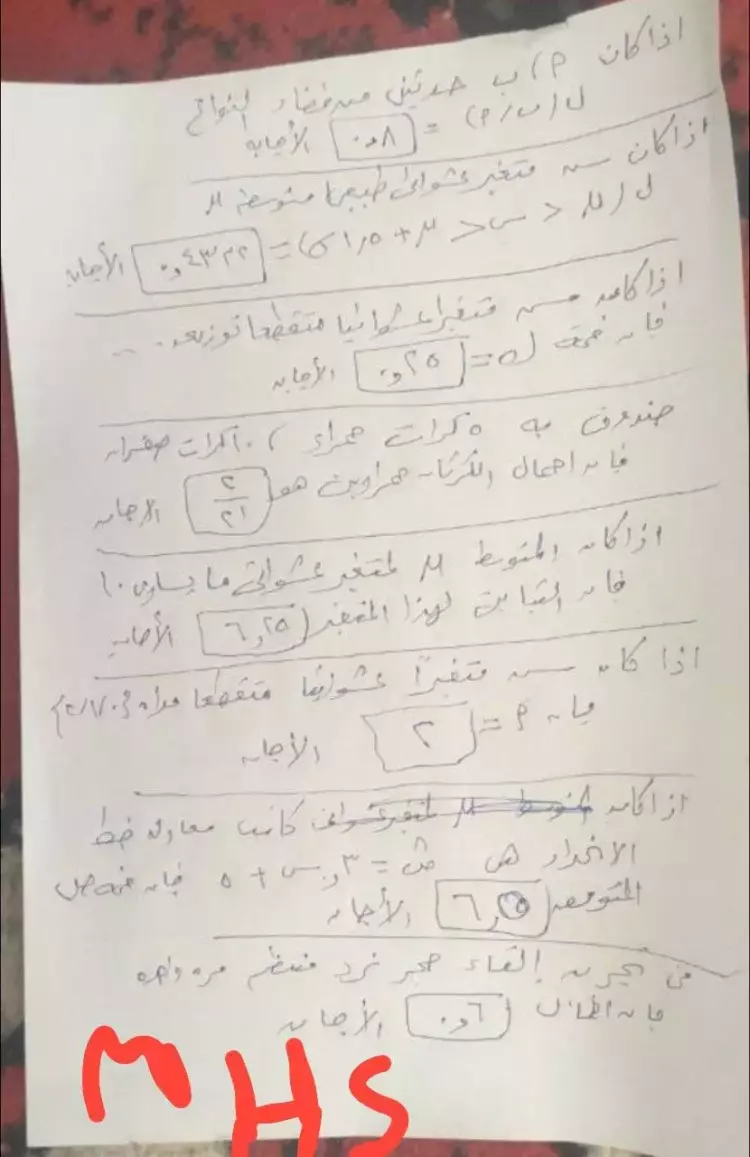 اذا كان م) ب حدثين من فضاء النواتج
ل (ب/م) = ٨و. الأجابه
اذا كان س متغير عشوائى طبيعيا متوسطه µ
ل (µ < س < µ + ١,٥ σ) = ٤٣٣٢و. الأجابه
اذا كان س متغيرا عشوائيا متقطعا توزيعه ...
فإن قيمة ك = ٢٥و. الأجابه
صندوق به ٥ كرات حمراء ) ١٠ كرات صفراء
فإن احتمال الكرتان حمراوين هو ٢/٢١ الاجابه
اذا كان المتوسط µ لمتغير عشوائى ما يساوى ١٠
فإن التباين لهذا المتغير ٦,٢٥ الأجابه
اذا كان س متغيرًا عشوائيا متقطعا مداه {٠،١،٢}
فإن م = ٢ الأجابه
اذا كان كانت معادلة خط
الانحدار هى ص = ٣و س + ٥ فإن ص
المتوقعه ٦,٥ الأجابه
فى تجربه إلقاء حجر نرد منتظم مره واحده
فإن ٦و. الأجابه
MHS